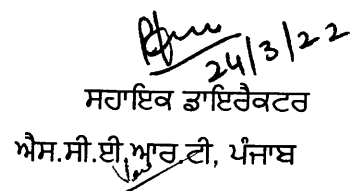 24/3/22
ਸਹਾਇਕ ਡਾਇਰੈਕਟਰ
ਐਸ.ਸੀ.ਈ.ਆਰ.ਟੀ, ਪੰਜਾਬ